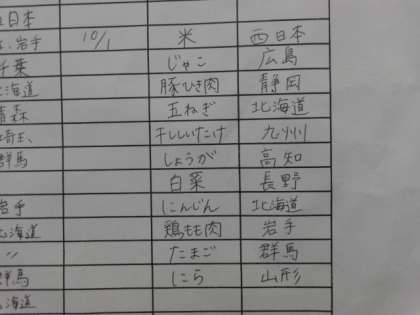 日本
岩手 10/1 米 西日本
千葉 じゃこ 広島
北海道 豚ひき肉 静岡
青森 玉ねぎ 北海道
埼玉、 干ししいたけ 九州
群馬 しょうが 高知
白菜 長野
岩手 にんじん 北海道
北海道 鶏もも肉 岩手
〃 たまご 群馬
群馬 にら 山形
北海道